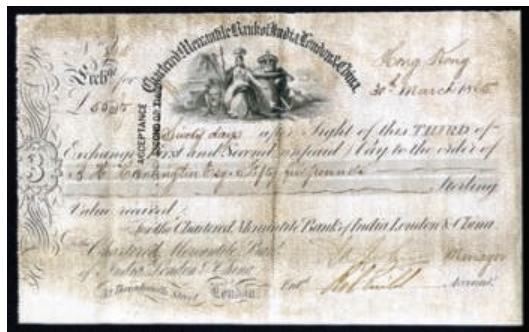 Chartered Mercantile Bank of India, London & China.
Hong Kong
Exch. for
30th March 1865
ACCEPTANCE
Sixty days after Sight of this THIRD of
Exchange First and Second unpaid Pay to the order of
Esqre Fifty pounds
Sterling
Value received
For the Chartered Mercantile Bank of India London & China
The Chartered Mercantile Bank
of India London & China
Manager
London
Entd.
Account.